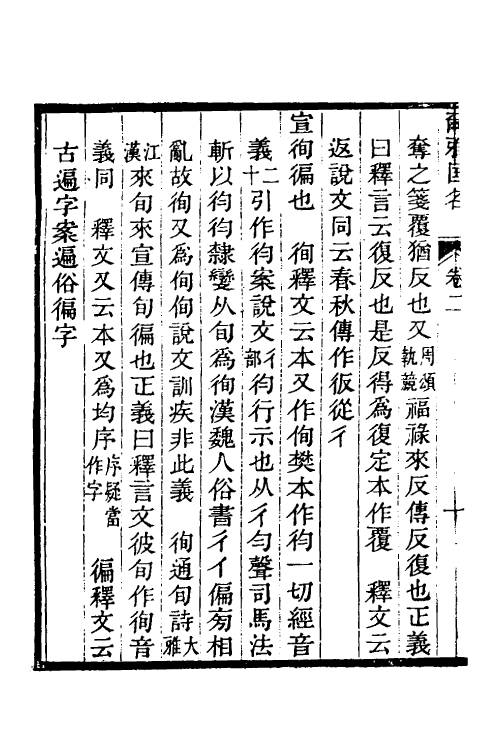 爾雅匡名　卷二　十
奪之箋覆猶反也又周頌執競福祿來反傳反復也正義
曰釋言云復反也是反得為復定本作覆　釋文云
返說文同云春秋傳作𢓉從彳
宣徇徧也　徇釋文云本又作侚樊本作𢓈一切經音
義十二引作𢓈案說文彳部𢓈行示也从彳勻聲司馬法
斬以𢓈𢓈隸變从旬為徇漢魏人俗書彳亻偏旁相
亂故徇又為侚侚說文訓疾非此義　徇通旬詩大雅
江漢來旬來宣傳旬徧也正義曰釋言文彼旬作徇音
義同　釋文又云本又為均序序疑當作字　徧釋文云
古遍字案遍俗徧字